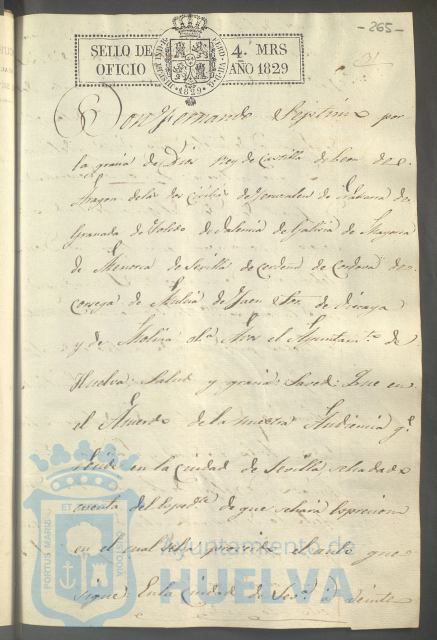 -265-
SELLO DE OFICIO
4. MRS
AÑO 1829
Don Fernando Septimo por
la gracia de Dios Rey de Castilla de Leon de
Aragon delas dos Cicilias de Jerusalen de Navarra de
Granada de Toledo de Valencia de Galicia de Mayorca
de Menorca de Sevilla de Cerdeña de Cordova de
Corcega de Murcia de Jaen Sor. de Vizcaya
y de Molina &a Avos el Ayuntamto. de
Huelva: Salud y gracia: Saved: Que en
el Acuerdo de la nuestra Audiencia qe.
recide en la Ciudad de Sevilla se ha dado
cuenta del Espedte. de que se hará Espresion
en el cual se ha proveido el auto que
sigue: En la Ciudad de Seva. á veinte
PORTUS MARIS ET TERRAE CUSTODIA
Ayuntamiento de
HUELVA